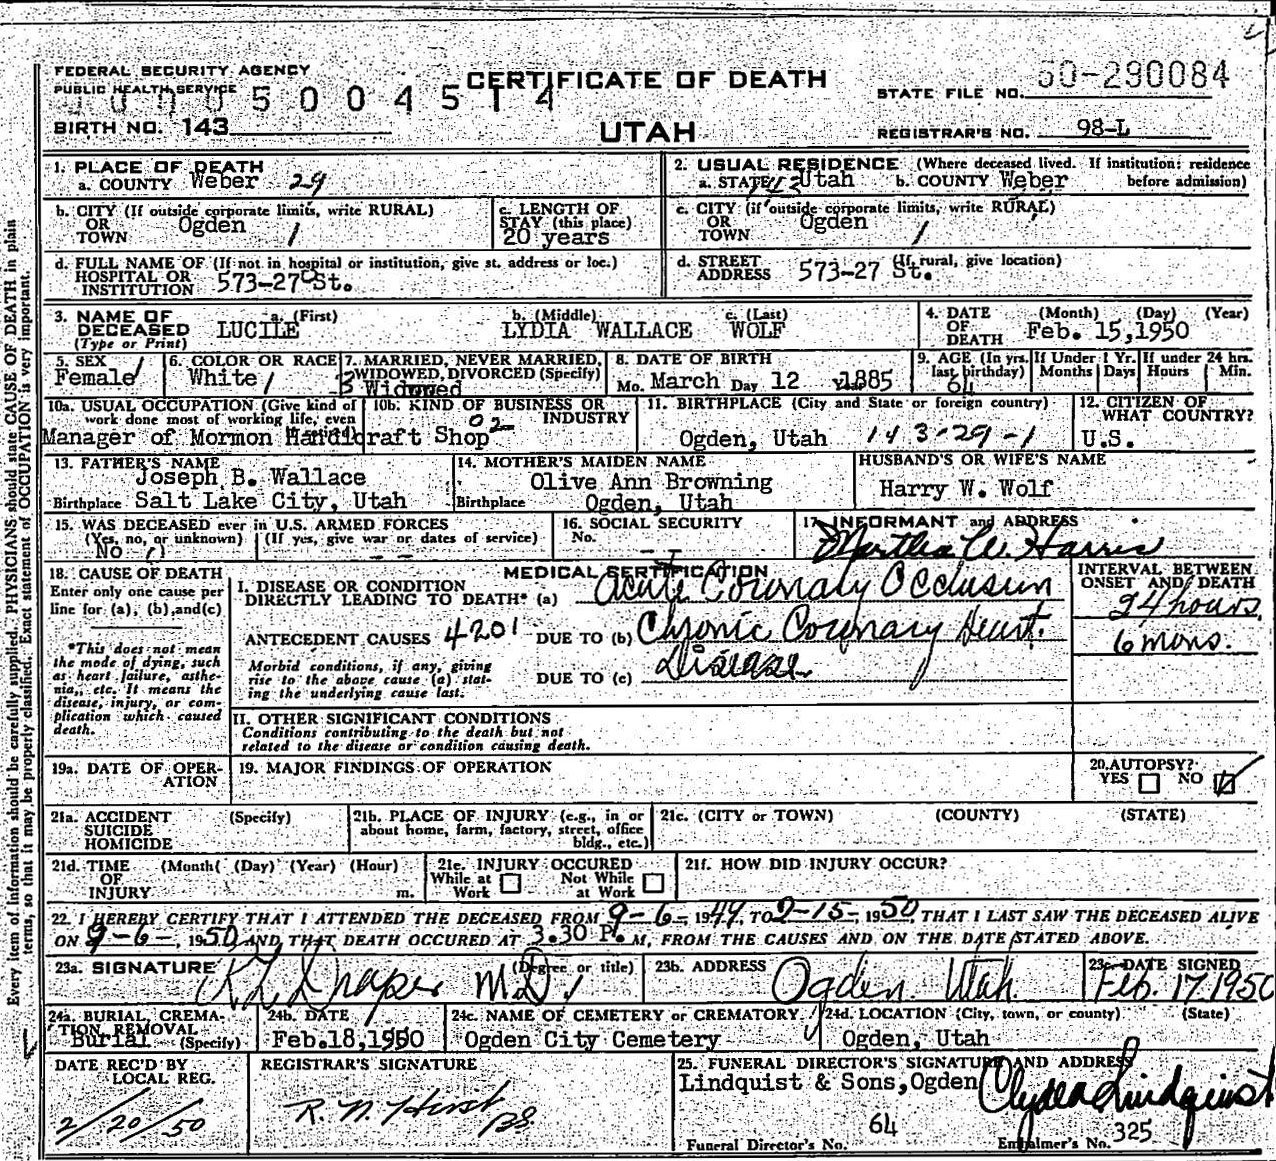 FEDERAL SECURITY AGENCY
PUBLIC HEALTH SERVICE
CERTIFICATE OF DEATH
STATE FILE NO. 50-290084
5 0 0 4 5 1 4
BIRTH NO. 143
UTAH
REGISTRAR'S NO. 98-L
1. PLACE OF DEATH
a. COUNTY Weber 29
2. USUAL RESIDENCE (Where deceased lived. If institution: residence before admission)
a. STATE Utah b. COUNTY Weber
b. CITY (If outside corporate limits, write RURAL)
OR TOWN Ogden 1
c. LENGTH OF STAY (this place)
20 years
c. CITY (if outside corporate limits, write RURAL)
OR TOWN Ogden 1
d. FULL NAME OF (If not in hospital or institution, give st. address or loc.)
HOSPITAL OR INSTITUTION 573-27 St.
d. STREET ADDRESS (If rural, give location)
573-27 St.
3. NAME OF DECEASED (Type or Print)
a. (First) b. (Middle) c. (Last)
LUCILE LYDIA WALLACE WOLF
4. DATE OF DEATH (Month) (Day) (Year)
Feb. 15,1950
5. SEX
Female 1
6. COLOR OR RACE
White 1
7. MARRIED, NEVER MARRIED, WIDOWED, DIVORCED (Specify)
3 Widowed
8. DATE OF BIRTH
Mo. March Day 12 Year 1885
9. AGE (In yrs. last birthday)
64
If Under 1 Yr. Months Days
If under 24 hrs. Hours Min.
10a. USUAL OCCUPATION (Give kind of work done most of working life, even
10b. KIND OF BUSINESS OR INDUSTRY
02
Manager of Mormon Handicraft Shop
11. BIRTHPLACE (City and State or foreign country)
Ogden, Utah 143-29-1
12. CITIZEN OF WHAT COUNTRY?
U.S.
13. FATHER'S NAME
Joseph B. Wallace
Birthplace Salt Lake City, Utah
14. MOTHER'S MAIDEN NAME
Olive Ann Browning
Birthplace Ogden, Utah
HUSBAND'S OR WIFE'S NAME
Harry W. Wolf
15. WAS DECEASED ever in U.S. ARMED FORCES
(Yes, no, or unknown) (If yes, give war or dates of service)
No - -
16. SOCIAL SECURITY
No.
17. INFORMANT and ADDRESS
Martha W. Harris
18. CAUSE OF DEATH
Enter only one cause per line for (a), (b), and (c)
*This does not mean the mode of dying, such as heart failure, asthenia, etc. It means the disease, injury, or complication which caused death.
MEDICAL CERTIFICATION
INTERVAL BETWEEN ONSET AND DEATH
I. DISEASE OR CONDITION
DIRECTLY LEADING TO DEATH* (a) Acute Coronary Occlusion
24 hours
ANTECEDENT CAUSES 4201 DUE TO (b) Chronic Coronary Heart
6 mons.
Morbid conditions, if any, giving rise to the above cause (a) stating the underlying cause last.
DUE TO (c) Disease
II. OTHER SIGNIFICANT CONDITIONS
Conditions contributing to the death but not related to the disease or condition causing death.
19a. DATE OF OPERATION
19. MAJOR FINDINGS OF OPERATION
20. AUTOPSY?
YES NO
21a. ACCIDENT SUICIDE HOMICIDE (Specify)
21b. PLACE OF INJURY (e.g., in or about home, farm, factory, street, office bldg., etc.)
21c. (CITY or TOWN) (COUNTY) (STATE)
21d. TIME OF INJURY (Month) (Day) (Year) (Hour) m.
21e. INJURY OCCURED
While at Work Not While at Work
21f. HOW DID INJURY OCCUR?
22. I HEREBY CERTIFY THAT I ATTENDED THE DECEASED FROM 9-6-, 1949, TO 2-15-, 1950, THAT I LAST SAW THE DECEASED ALIVE
ON 9-6-, 1950 AND THAT DEATH OCCURED AT 3.30 P. M, FROM THE CAUSES AND ON THE DATE STATED ABOVE.
23a. SIGNATURE (Degree or title)
K L Draper M.D.
23b. ADDRESS
Ogden Utah
23c. DATE SIGNED
Feb. 17, 1950
24a. BURIAL, CREMATION, REMOVAL (Specify)
Burial
24b. DATE
Feb.18,1950
24c. NAME OF CEMETERY or CREMATORY
Ogden City Cemetery
24d. LOCATION (City, town, or county) (State)
Ogden, Utah
DATE REC'D BY LOCAL REG.
2/20/50
REGISTRAR'S SIGNATURE
R. N. Hirst
25. FUNERAL DIRECTOR'S SIGNATURE AND ADDRESS
Lindquist & Sons,Ogden Clyde Lindquist
Funeral Director's No. 64
Embalmer's No. 325
Every item of information should be carefully supplied. PHYSICIANS should state CAUSE OF DEATH in plain
terms, so that it may be properly classified. Exact statement of OCCUPATION is very important.